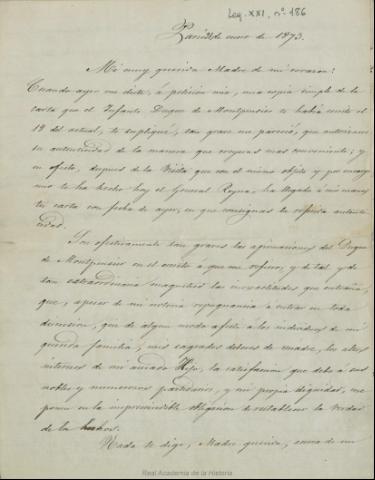 Leg. XXI, nº 186
Paris 21 de enero de 1873.
Mi muy querida Madre de mi corazon:
Cuando ayer me diste, á peticion mia, una copia simple de la
carta que el Infante Duque de Montpensier te habia escrito el
19 del actual, te supliqué, tan grave me pareció, que autorizaras
su autenticidad de la manera que creyeras mas conveniente, y
en efecto, despues de la visita que con el mismo objeto y por encargo
mio te ha hecho hoy el General Reyna, ha llegado á mis manos
tu carta con fecha de ayer, en que consignas la espresada autenti-
cidad.
Son efectivamente tan graves las afirmaciones del Duque
de Montpensier en el escrito á que me refiero, y de tal y de
tan extraordinaria magnitud las inexactitudes que entraña,
que, apesar de mi notoria repugnancia á entrar en toda
discusion, que de algun modo afecte á los individuos de mi
querida familia, mis sagrados deberes de madre, los altos
intereses de mi amado Hijo, la satisfaccion que debo á sus
nobles y numerosos partidarios, y mi propia dignidad, me
ponen en la imprescindible obligacion de restablecer la verdad
de los hechos.
Nada te digo, Madre querida, acerca de un
Real Academia de la Historia